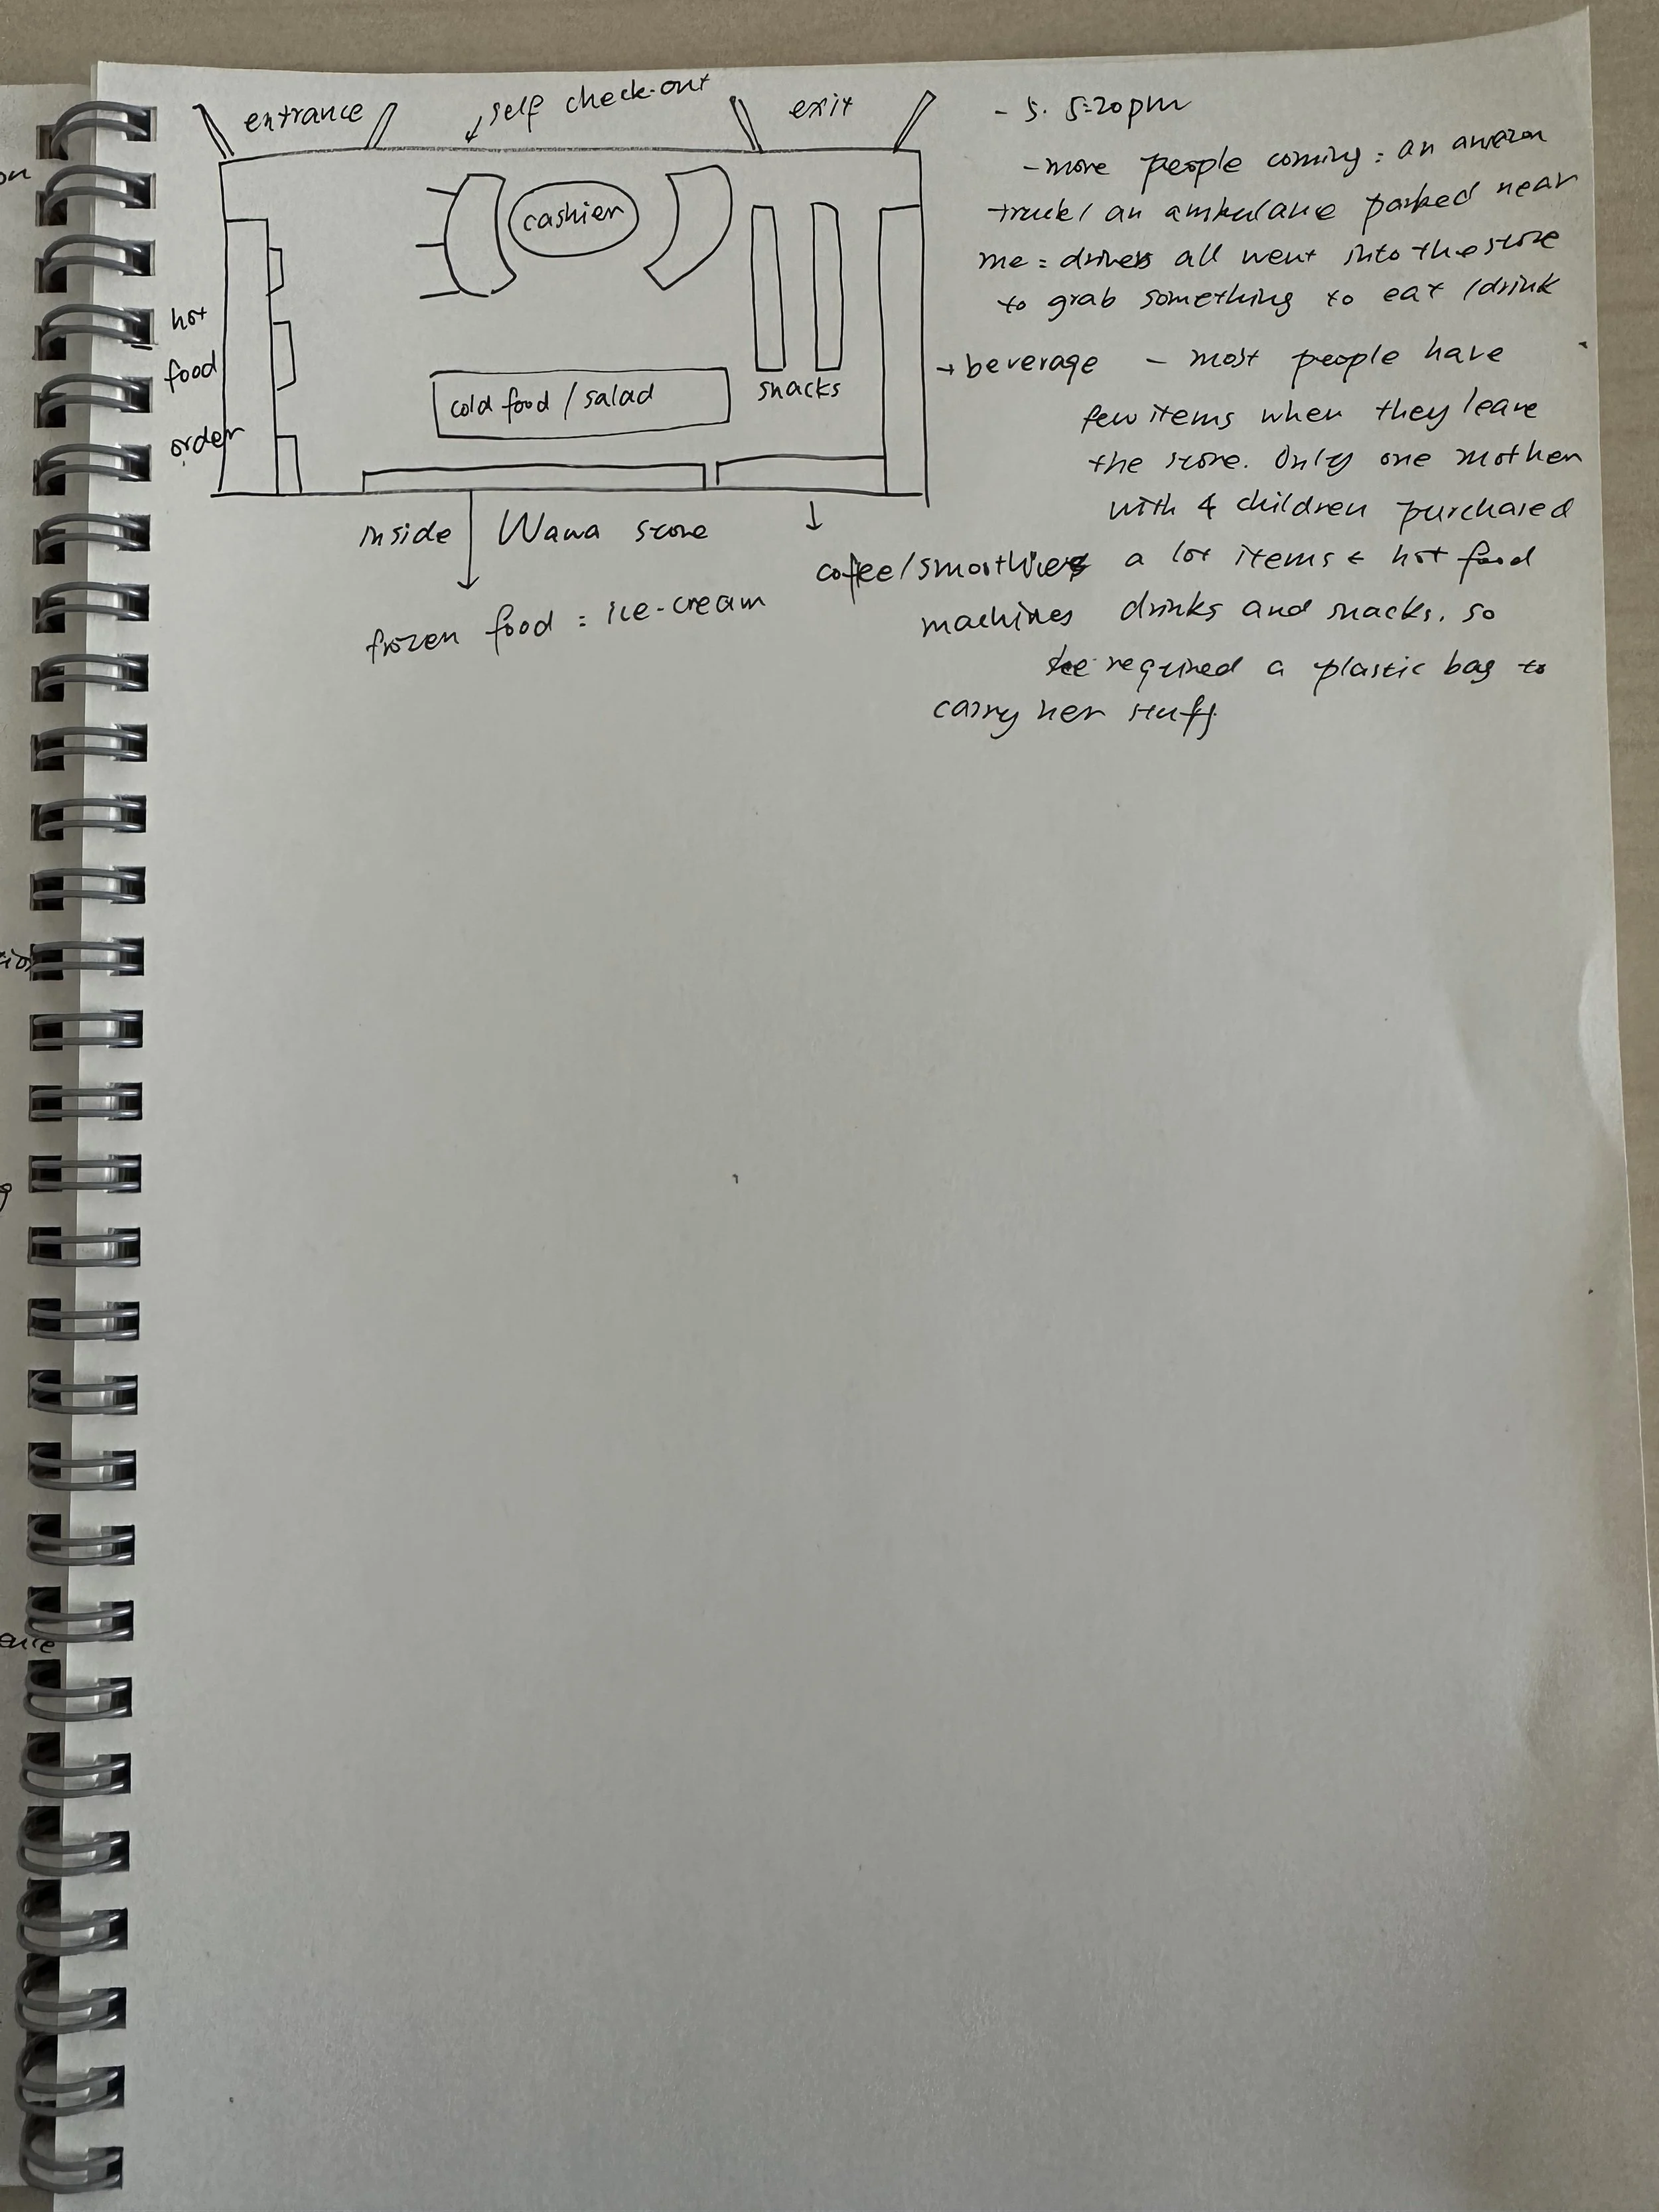 entrance
self check-out
exit
cashier
hot
food
order
cold food / salad
snacks
inside Wawa store
frozen food : ice-cream
coffee/smoothies
machines
→ beverage
- 5. 5:20pm
- more people coming : an amazon
truck / an ambulance parked near
me : drivers all went into the store
to grab something to eat / drink
- most people have
few items when they leave
the store. Only one mother
with 4 children purchased
a lot items & hot food
drinks and snacks. so
she required a plastic bag to
carry her stuff.